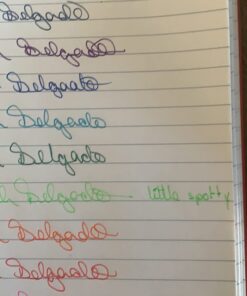 Delgado
Delgado
Delgado
Delgado
Delgado
Delgado - little spotty
Delgado
Delgado